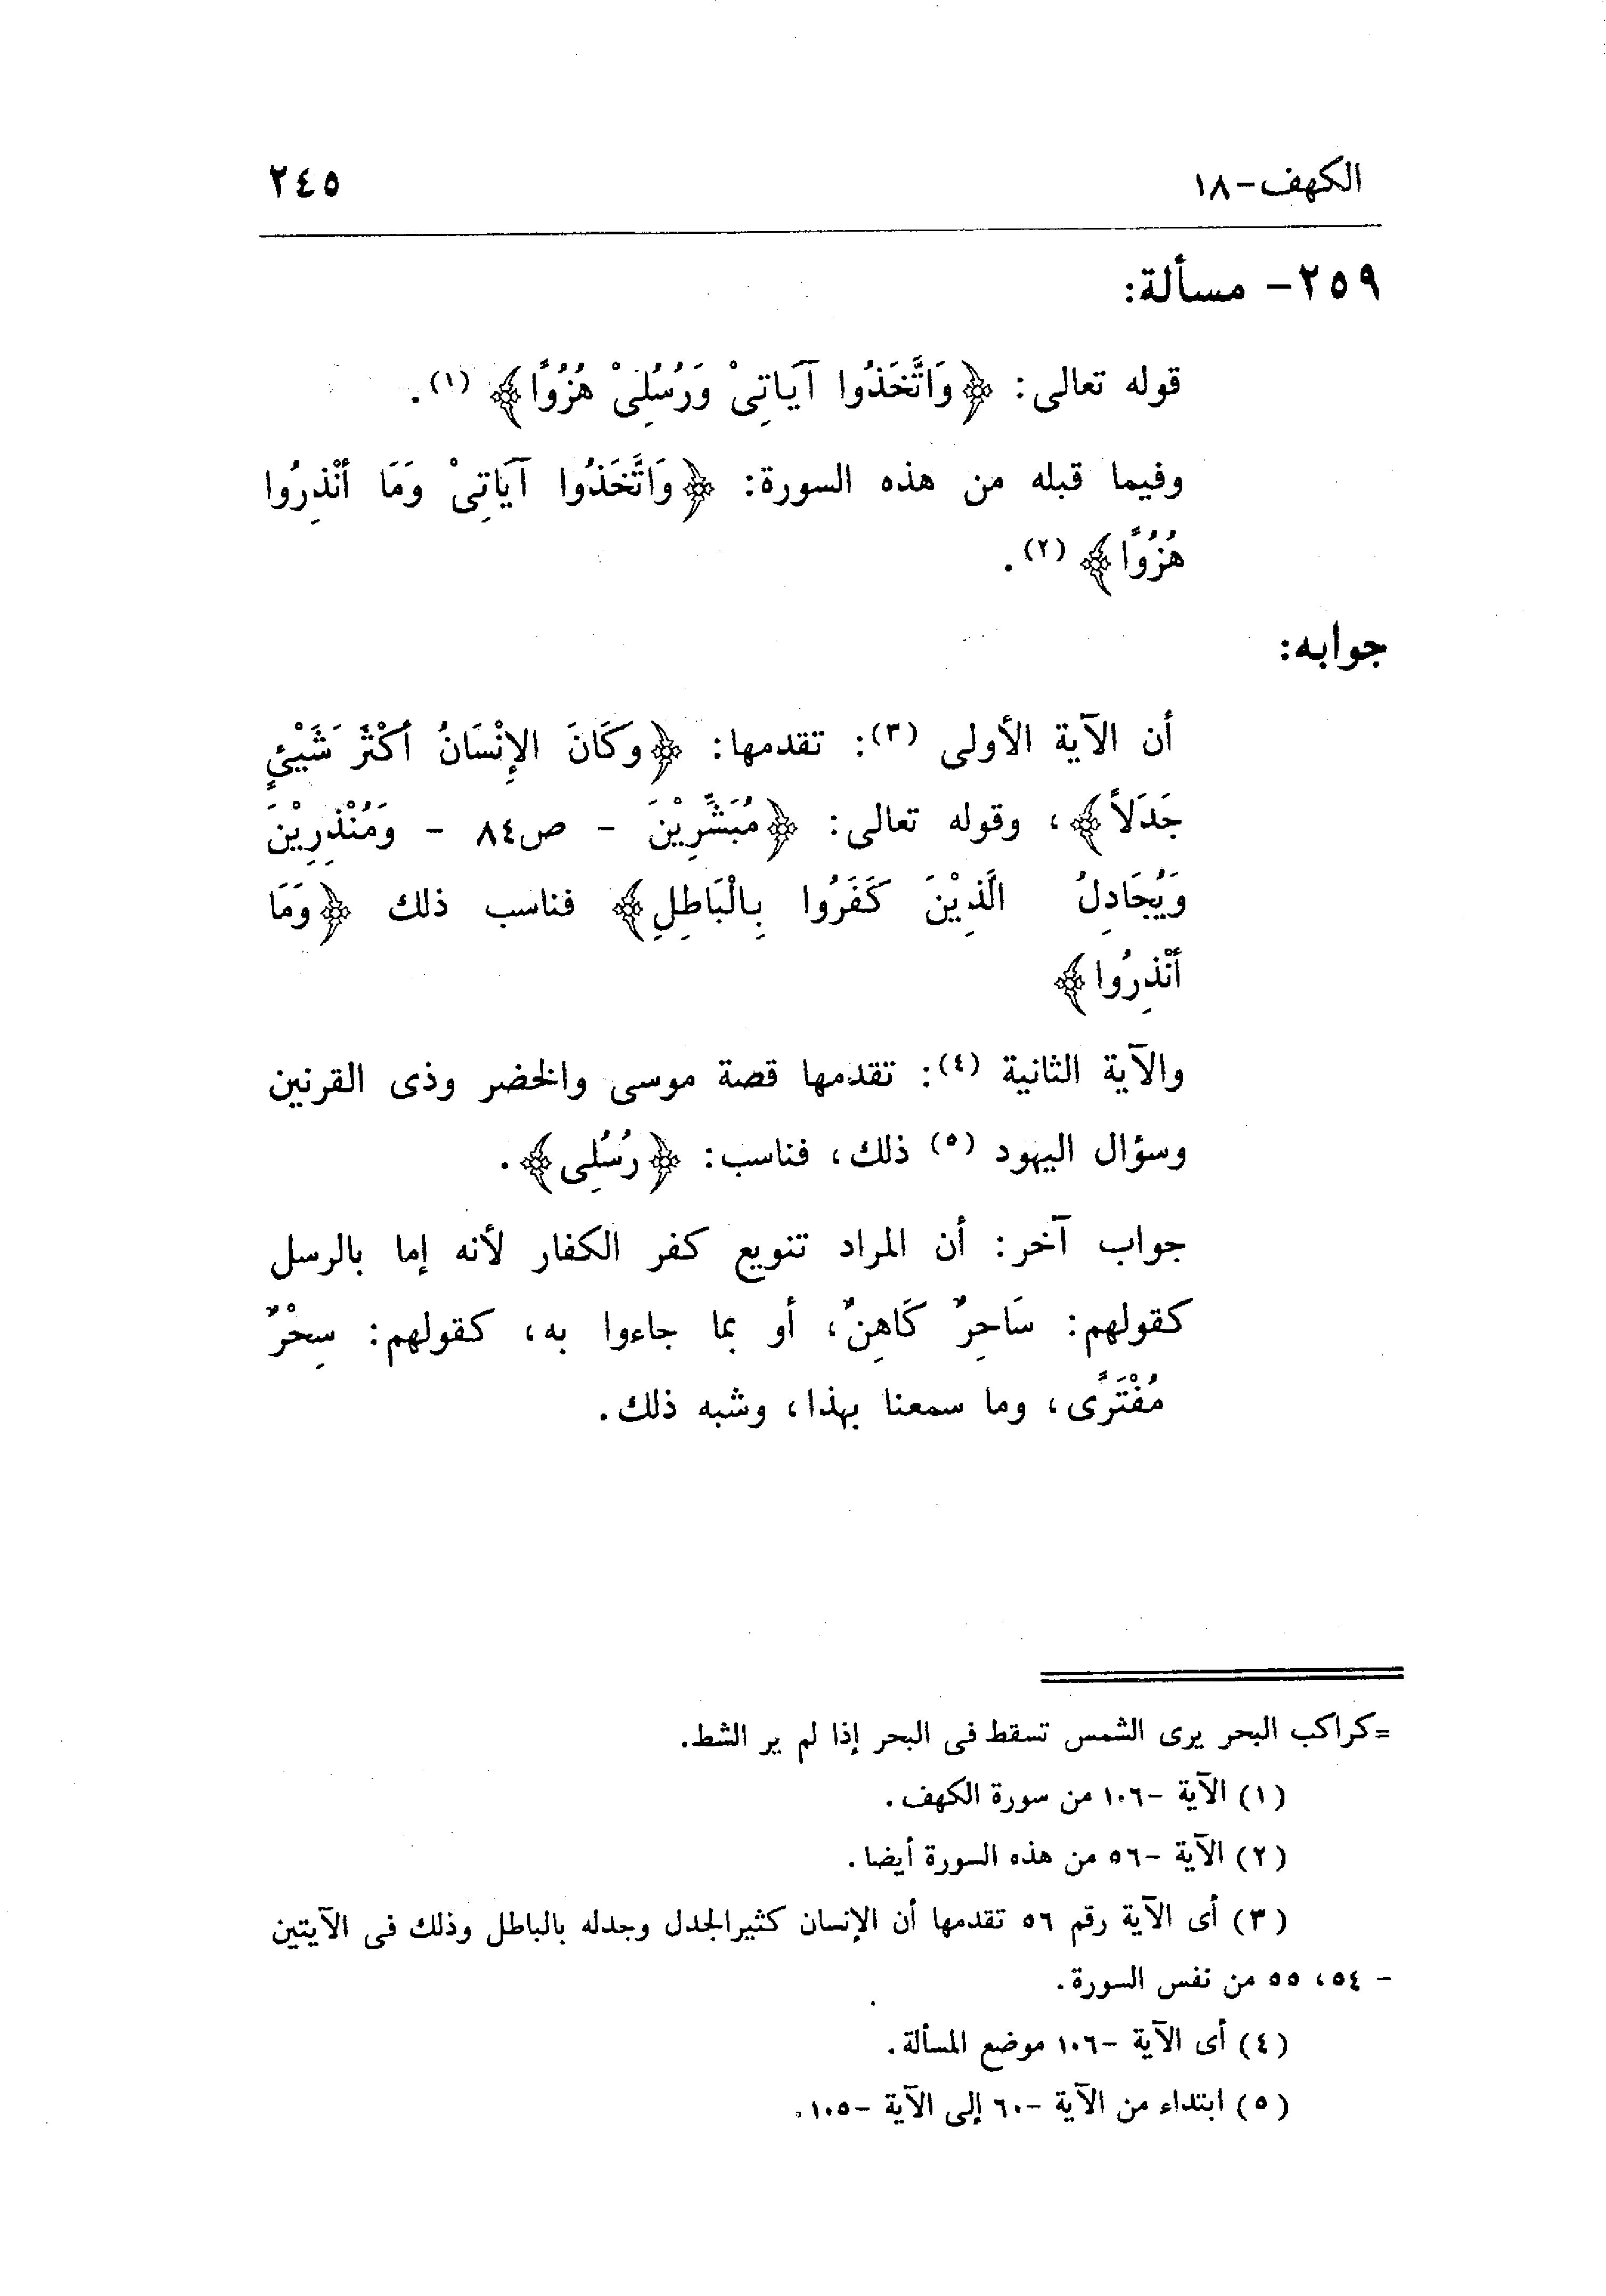 الكهف-١٨
٢٤٥
٢٥٩- مسألة:
قوله تعالى: ﴿وَاتَّخَذُوا آيَاتِىْ وَرُسُلِىْ هُزُوًا﴾ (١).
وفيما قبله من هذه السورة: ﴿وَاتَّخَذُوا آيَاتِىْ وَمَا أنْذِرُوا
هُزُوًا﴾ (٢).
جوابه:
أن الآية الأولى (٣): تقدمها: ﴿وكَانَ الإِنْسَانُ أكْثَرَ شَيْئٍ
جَدَلاً﴾، وقوله تعالى: ﴿مُبَشِّرِيْنَ - ص٨٤ - وَمُنْذِرِيْنَ
وَيُجَادِلُ الَّذِيْنَ كَفَرُوا بِالْبَاطِلِ﴾ فناسب ذلك ﴿وَمَا
أنْذِرُوا﴾
والآية الثانية (٤): تقدمها قصة موسى والخضر وذى القرنين
وسؤال اليهود (٥) ذلك، فناسب: ﴿رُسُلِى﴾.
جواب آخر: أن المراد تنويع كفر الكفار لأنه إما بالرسل
كقولهم: سَاحِرٌ كَاهِنٌ، أو بما جاءوا به، كقولهم: سِحْرٌ
مُفْتَرًى، وما سمعنا بهذا، وشبه ذلك.
=كراكب البحر يرى الشمس تسقط فى البحر إذا لم ير الشط.
(١) الآية -١٠٦ من سورة الكهف.
(٢) الآية -٥٦ من هذه السورة أيضا.
(٣) أى الآية رقم ٥٦ تقدمها أن الإنسان كثيرالجدل وجدله بالباطل وذلك فى الآيتين
- ٥٤، ٥٥ من نفس السورة.
(٤) أى الآية -١٠٦ موضع المسألة.
(٥) ابتداء من الآية -٦٠ إلى الآية -١٠٥.